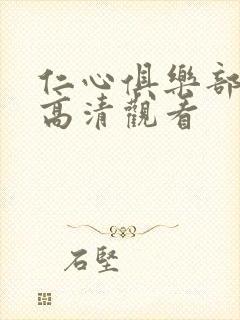 仁心俱樂部
高清觀看
石堅